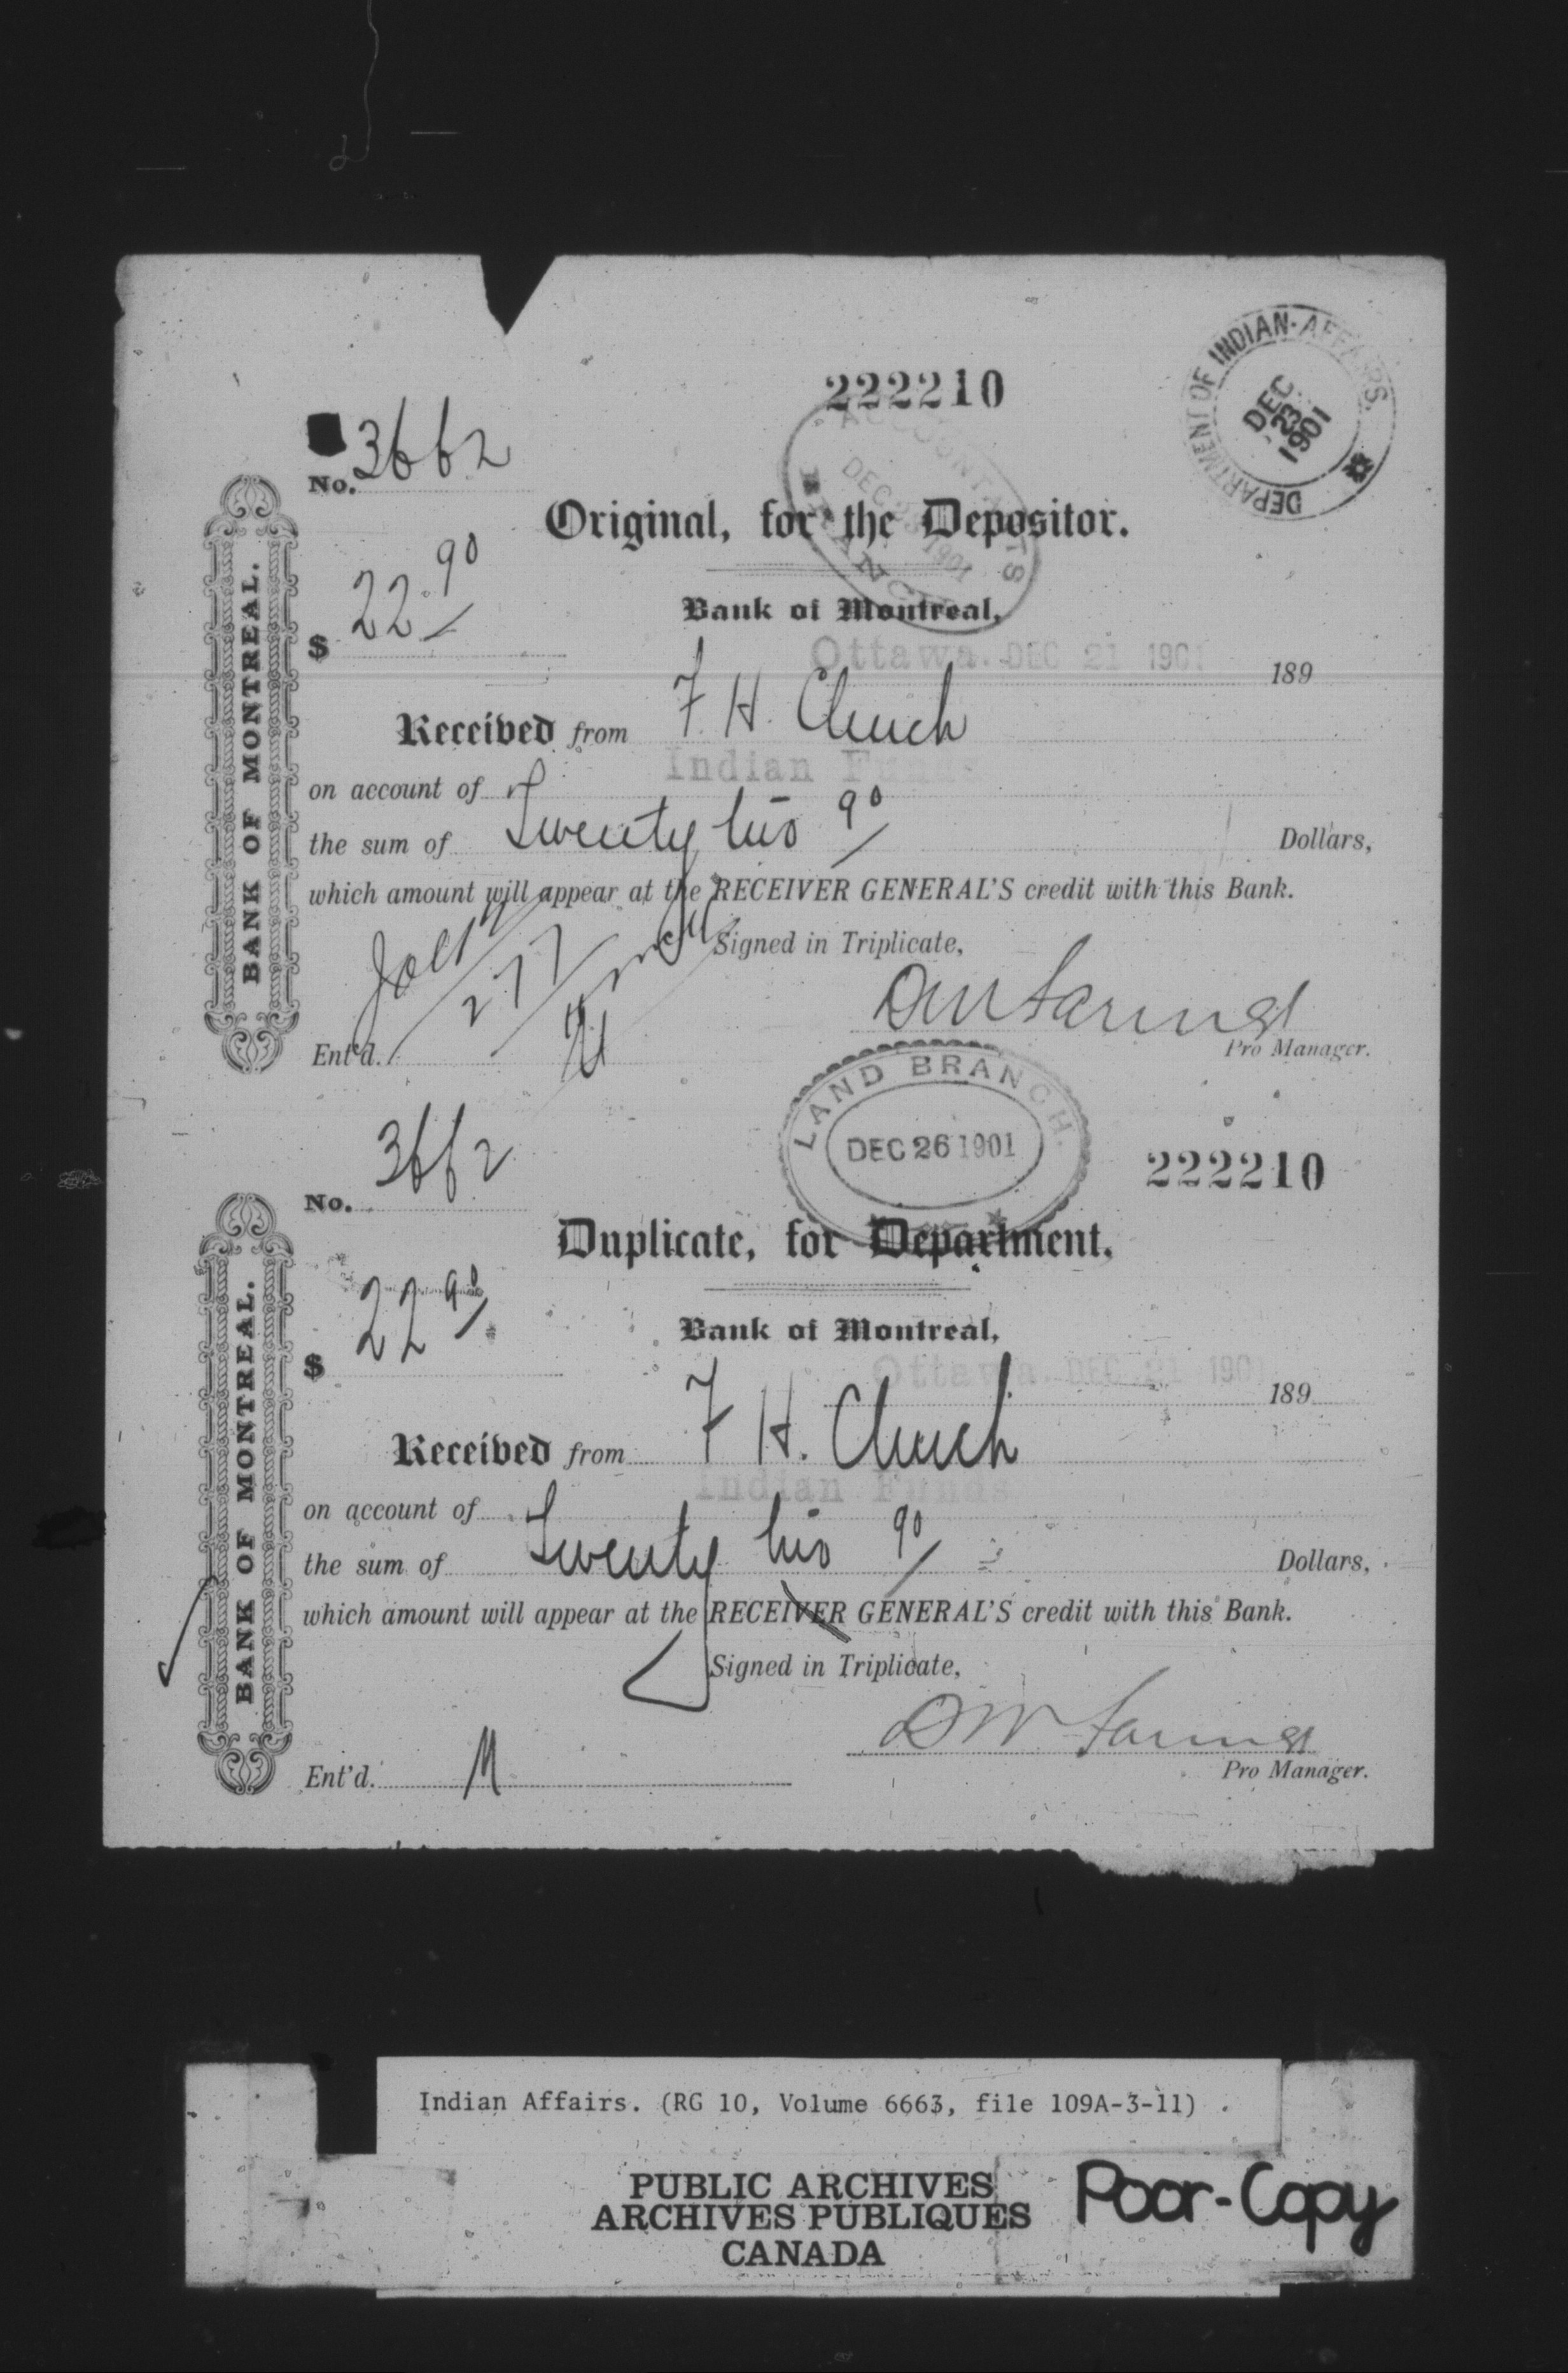 222210
DEPARTMENT OF INDIAN-AFFAIRS.
DEC
23
1901
No. 3662
ACCOUNTANTS BRANCH
DEC 1901
Original, for the Depositor.
$ 22 90/
Bank of Montreal,
Ottawa. DEC 21 1901 189
Received from F. H. Church
Indian Funds
on account of
the sum of Twenty two 90/ Dollars,
which amount will appear at the RECEIVER GENERAL'S credit with this Bank.
Signed in Triplicate,
277
Ent'd.
Pro Manager.
BANK OF MONTREAL.
LAND BRANCH.
DEC 26 1901
222210
No. 3662
Duplicate, for Department.
$ 22 90/
Bank of Montreal,
Ottawa. DEC 21 190 189
Received from F H. Church
Indian Funds
on account of
the sum of Twenty two 90/ Dollars,
which amount will appear at the RECEIVER GENERAL'S credit with this Bank.
Signed in Triplicate,
Ent'd.
Pro Manager.
BANK OF MONTREAL.
Indian Affairs. (RG 10, Volume 6663, file 109A-3-11) .
PUBLIC ARCHIVES
ARCHIVES PUBLIQUES
CANADA
Poor-Copy